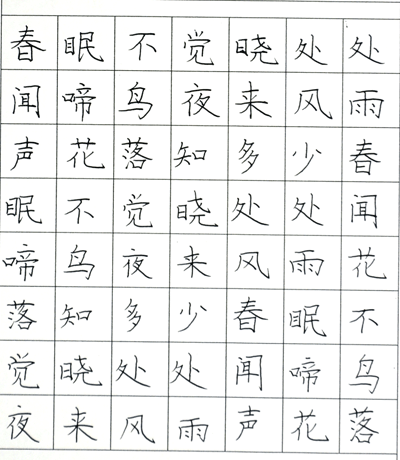 春眠不觉晓处处
闻啼鸟夜来风雨
声花落知多少春
眠不觉晓处处闻
啼鸟夜来风雨花
落知多少春眠不
觉晓处处闻啼鸟
夜来风雨声花落